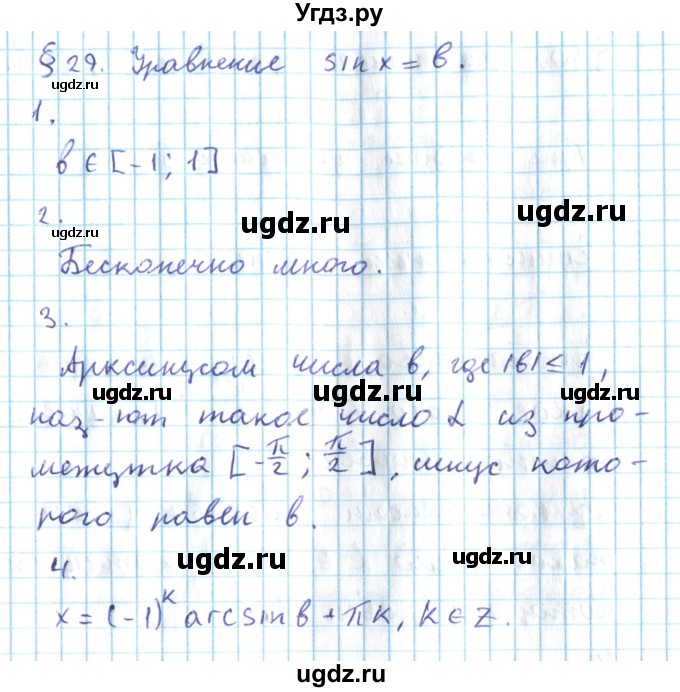 Угдз.ру
§ 29. Уравнение sin x = b.
ugdz.ru
1.
b ∈ [-1; 1]
2.
ugdz.ru
ugdz.ru
ugdz.ru
Бесконечно много.
3.
Арксинусом числа b, где |b| ≤ 1,
ugdz.ru
ugdz.ru
наз-ют такое число α из про-
межутка [-π/2; π/2], синус кото-
ugdz.ru
ugdz.ru
рого равен b.
4.
ugdz.ru
ugdz.ru
x = (-1)^k arcsin b + πk, k ∈ Z.